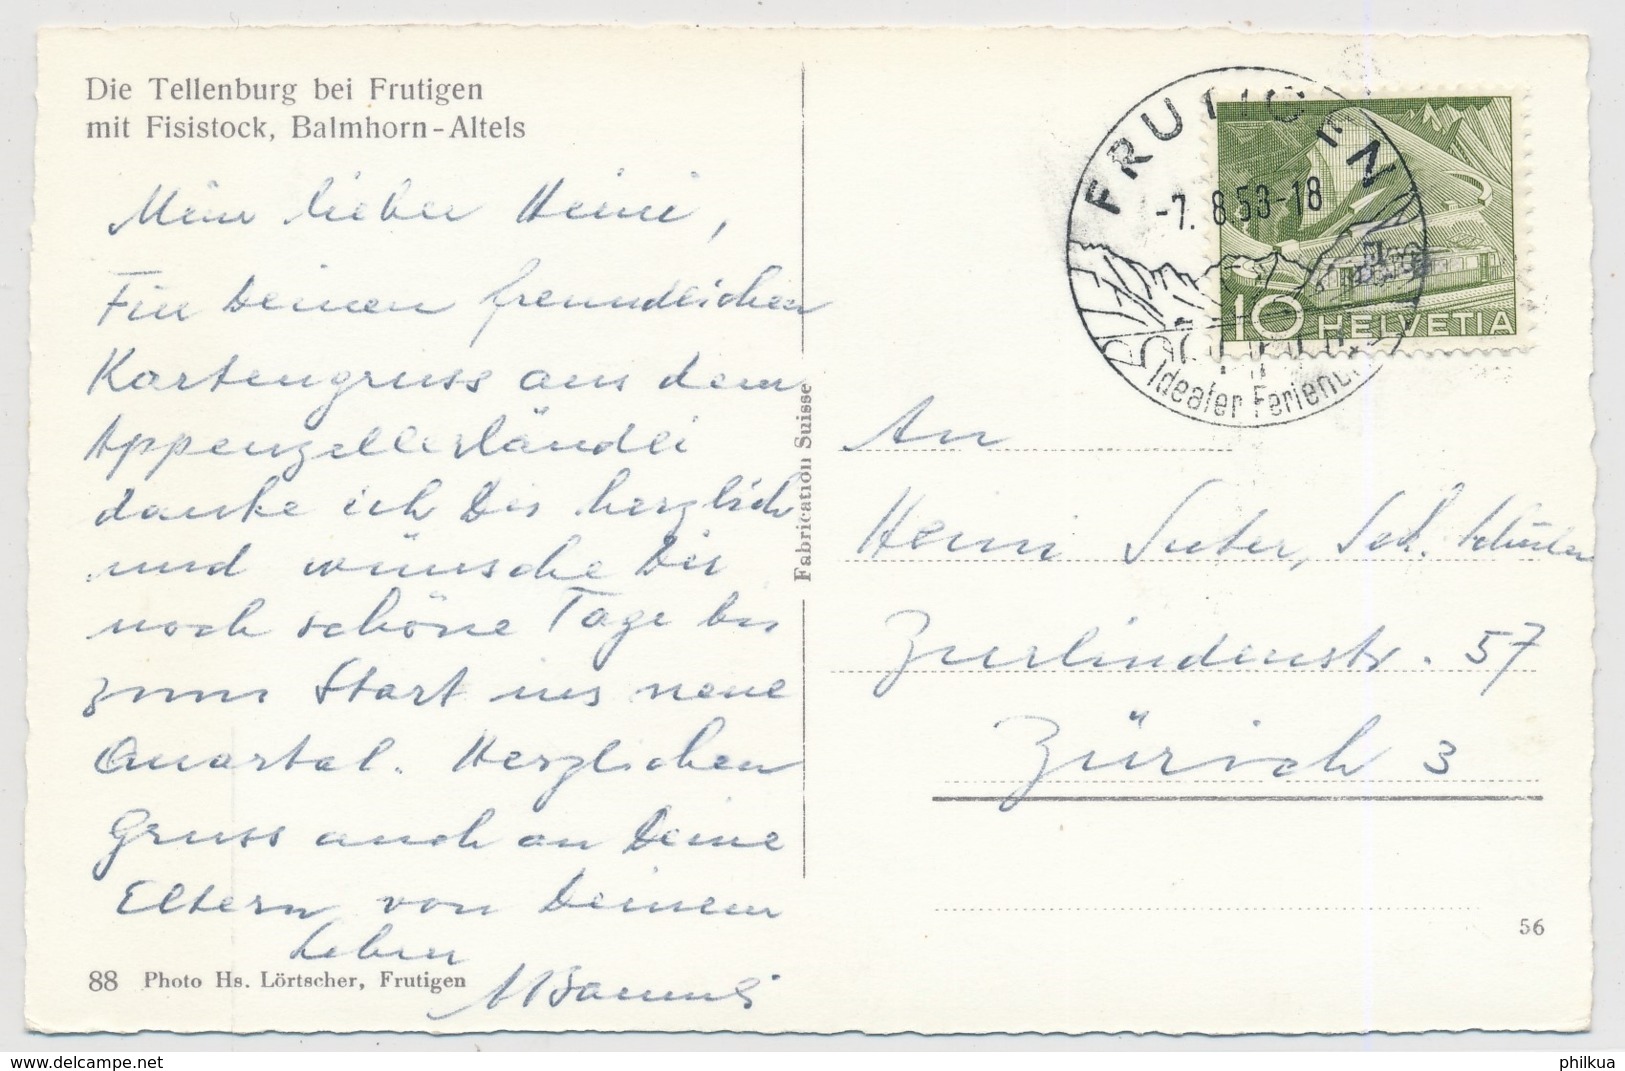 Die Tellenburg bei Frutigen
mit Fisistock, Balmhorn-Altels
Mein lieber Heini,
Für Deinen freundlichen
Kartengruss aus dem
Appenzellerländli
danke ich Dir herzlich
und wünsche Dir
noch schöne Tage bis
zum Start ins neue
Quartal. Herzlichen
Gruss auch an Deine
Eltern von Deinem
Lehrer
88 Photo Hs. Lörtscher, Frutigen
Fabrication Suisse
FRUTIGEN
-7. 8.53-18
Idealer Ferienort
10 HELVETIA
An
Heini Suter, Sek. Schüler
Zurlindenstr. 57
Zürich 3
56
philkua
delcampe.net